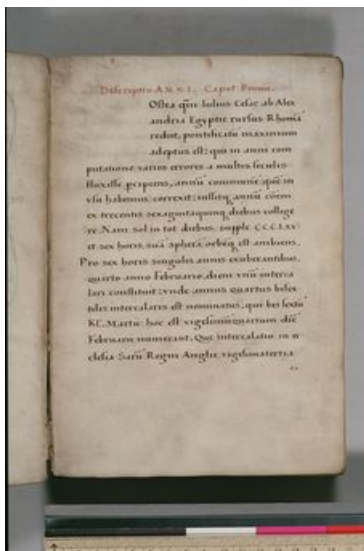 Descriptio ANNI. Caput Primū.
Ostea qm̄ Iulius Cesar ab Alex
andria Egyptie rursus Rhomā
redijt, pontificatū maximum
adeptus est: qui in anni com
putatione varios errores a multis seculis
fluxisse perpens, annū communē quē in
vsu habemus, correxit: instituitq annū cōem
ex trecentis sexagintaquinq diebus collige
re. Nam sol in tot diebus, supple CCCLXV
et sex horis, suā spherā orbēq est ambiens.
Pro sex horis singulis annis exuberantibus,
quarto anno Februario, diem vnū interca
lari constituit: vnde annus quartus bisex
tilis intercalaris est nominatus, qui bis sextū
KL. Martii hoc est vigesimūquartum diē
Februarii numerant. Que intercalatio in e
clesia Sarū Regni Anglie, vigesimatertia